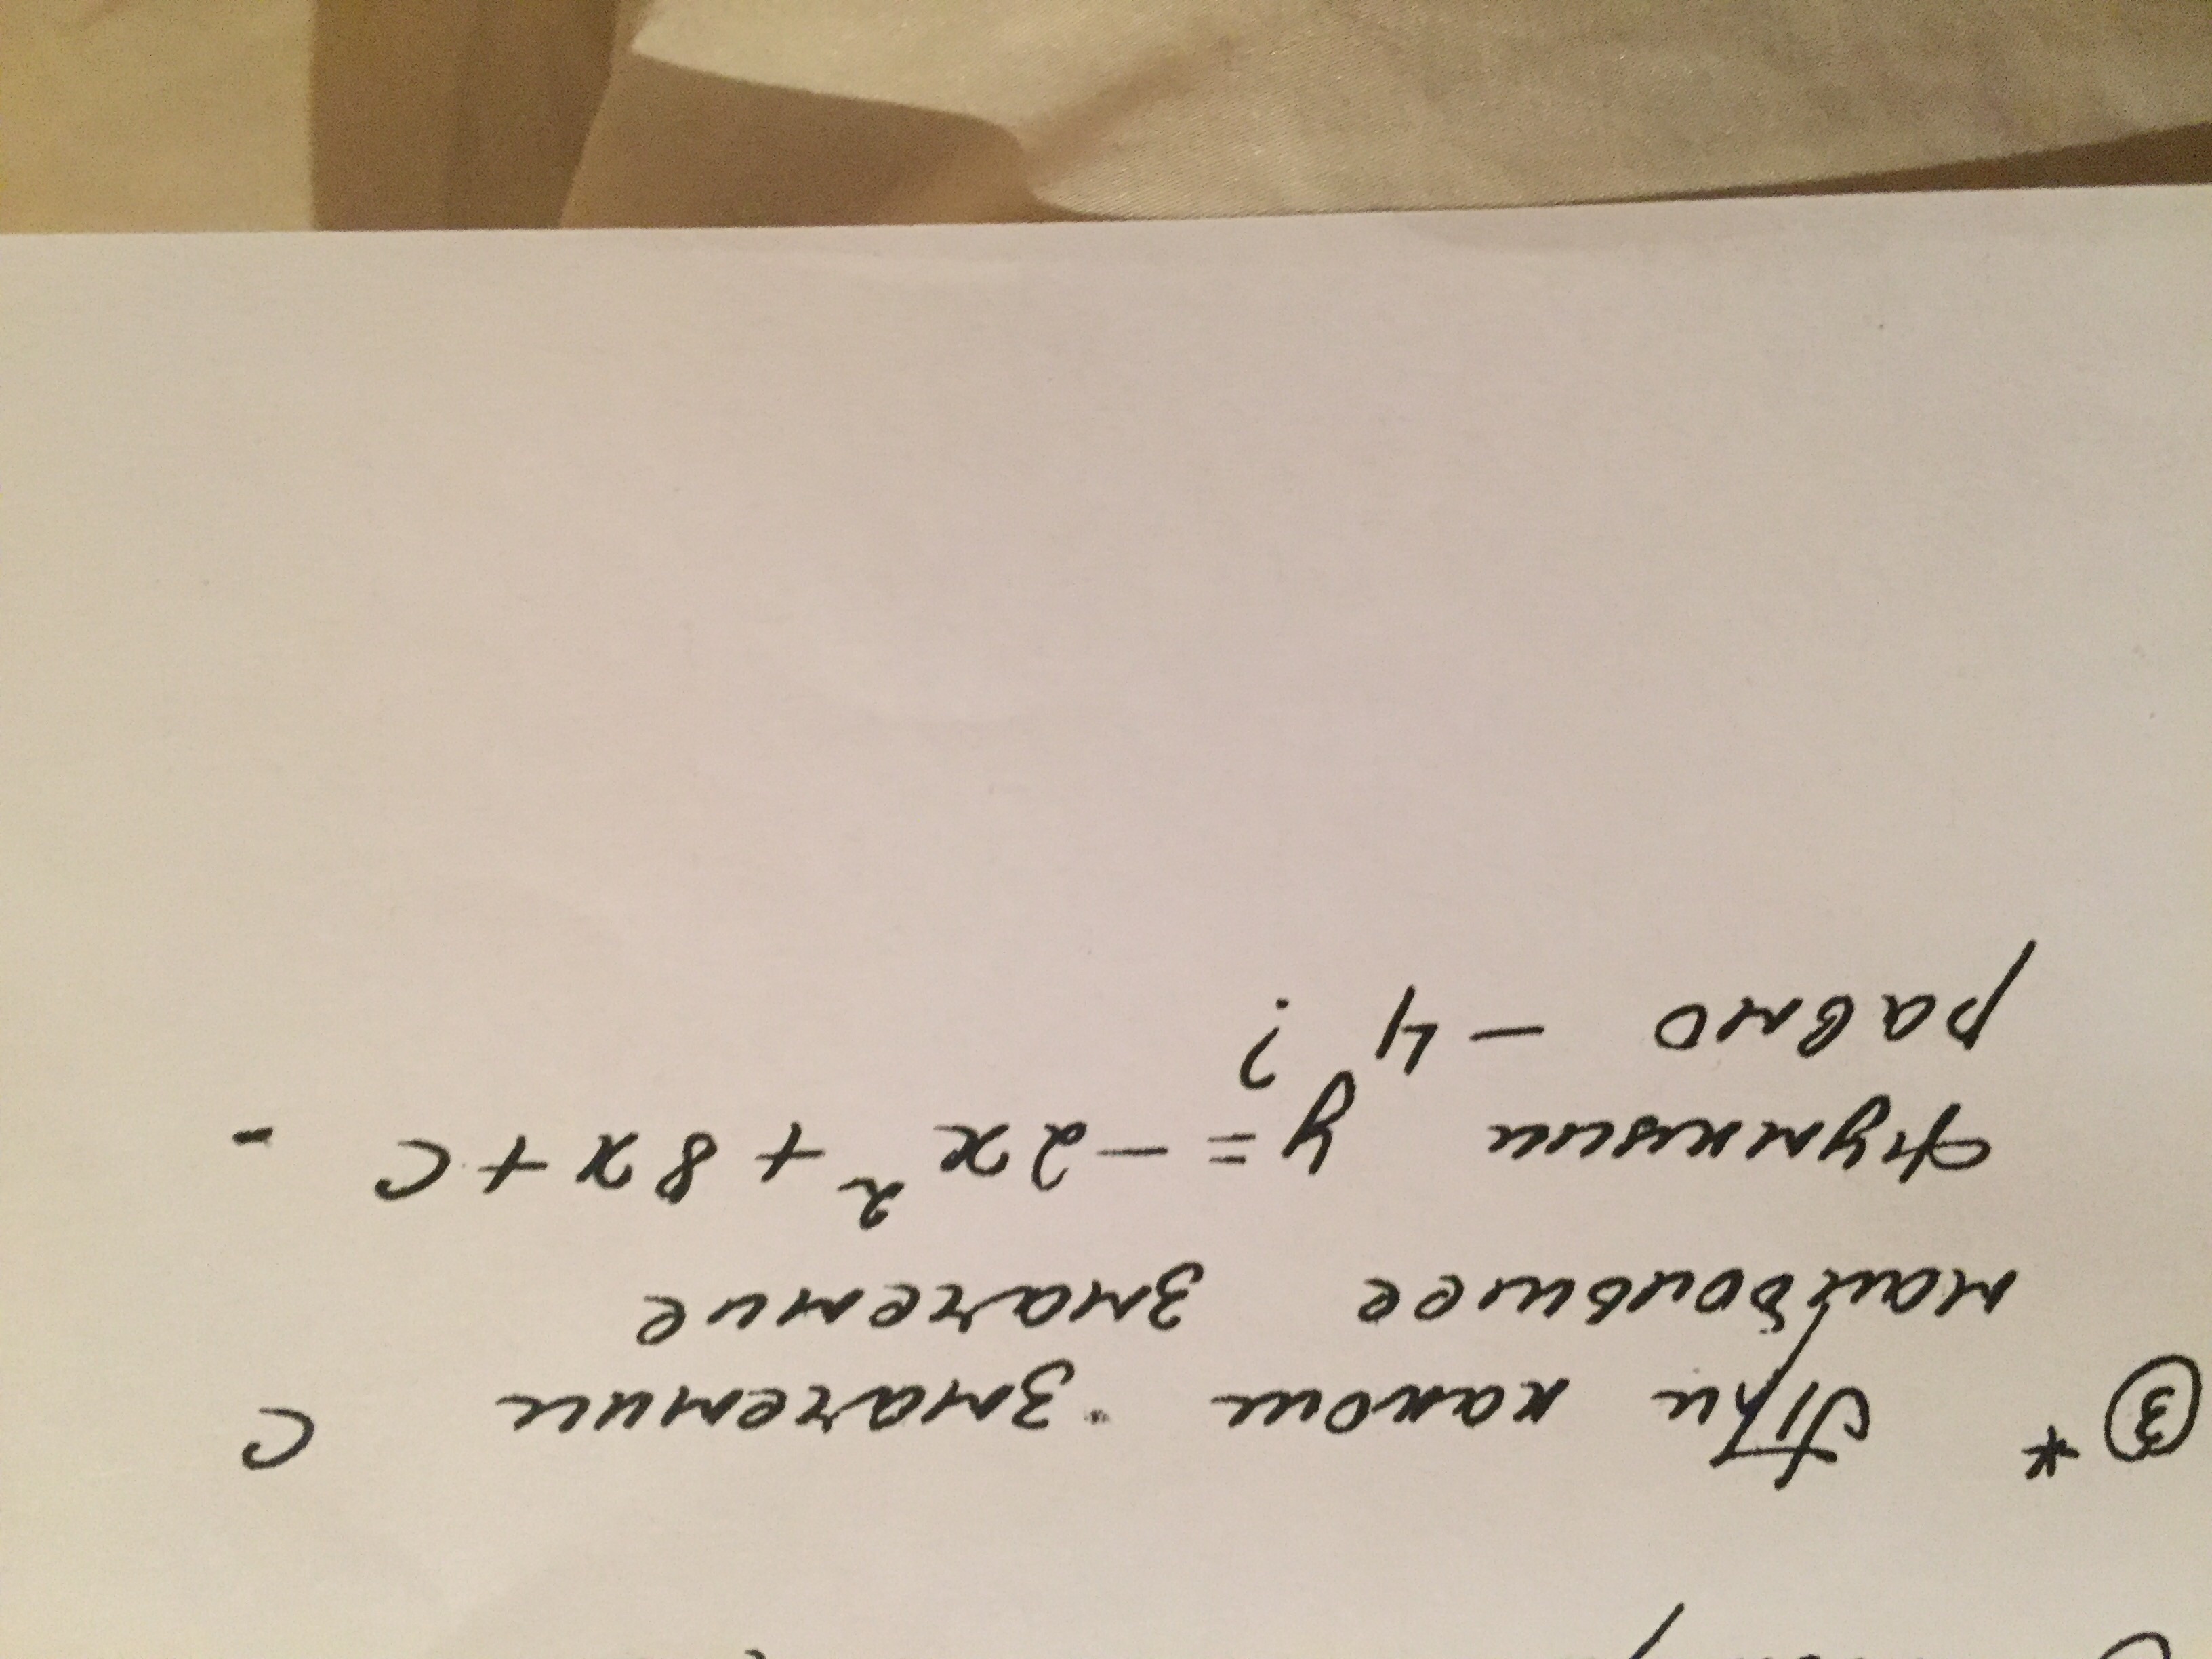 ③* При каком значении с
наибольшее значение
функции y = -2x² + 8x + c -
равно -4?